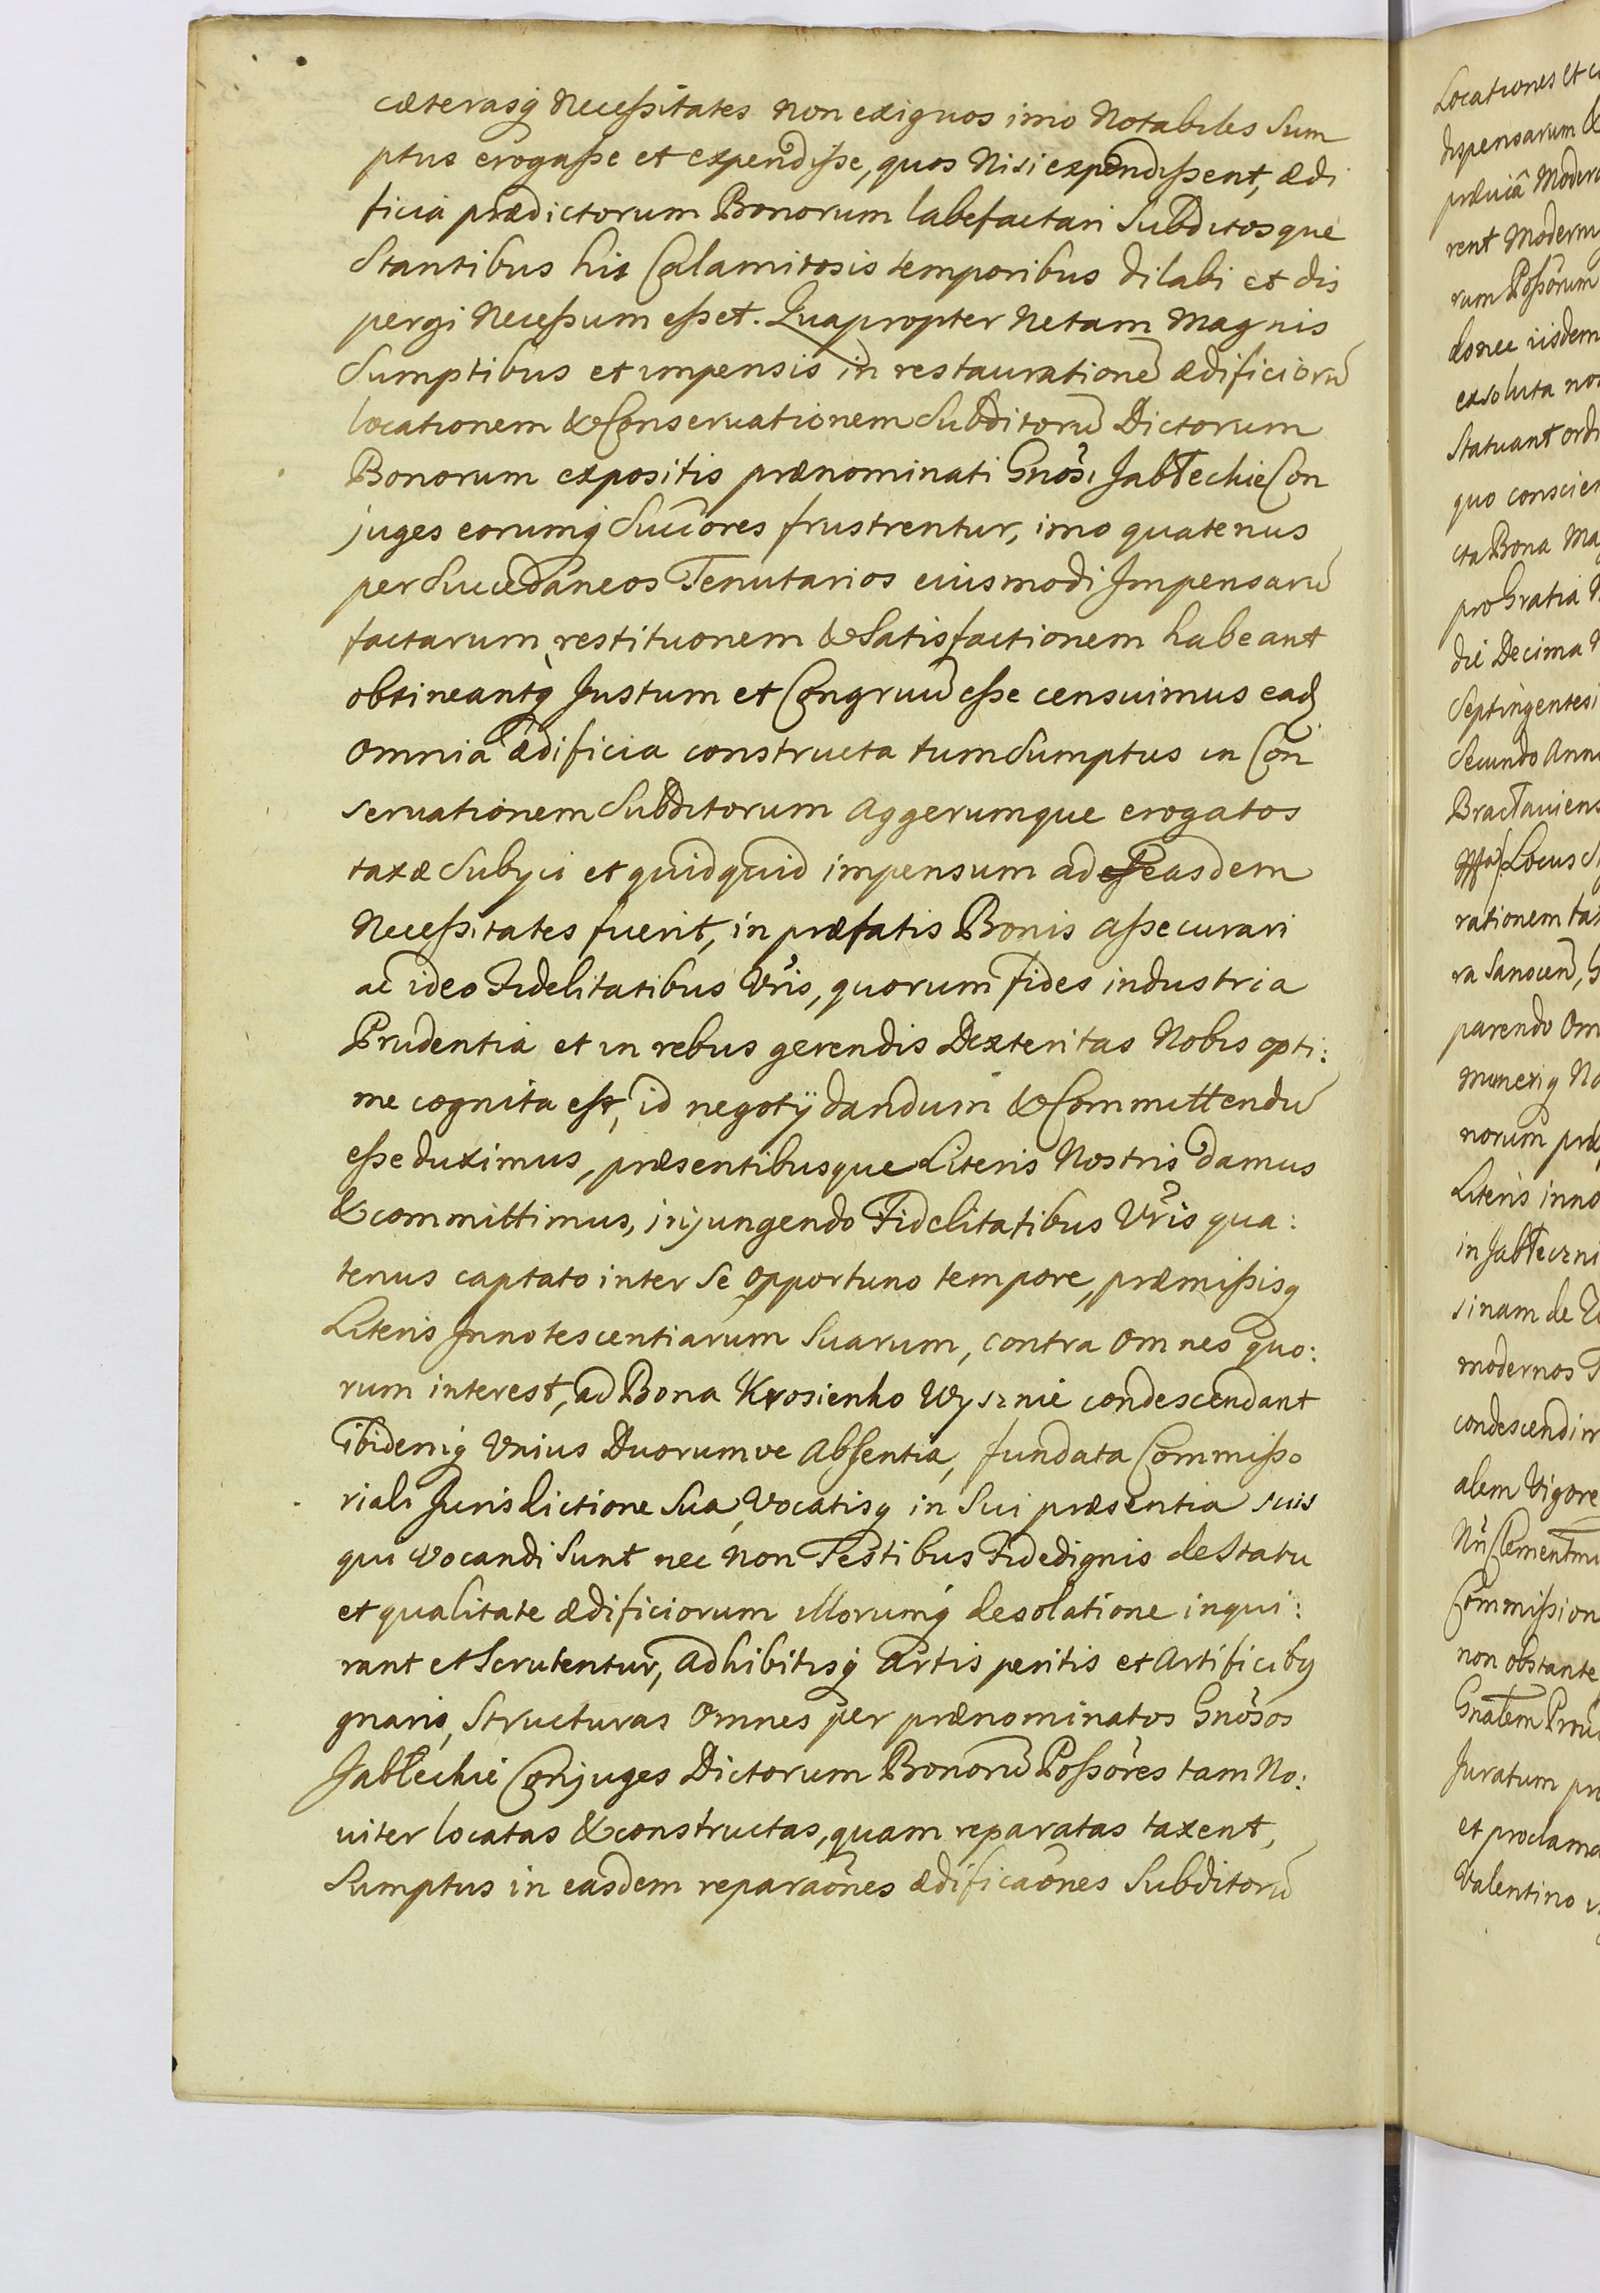 cæterasq́ Necessitates non exiguos imo Notabiles Sum
ptus erogasse et expendisse, quos Nisi expendissent, ædi
ficia prædictorum Bonorum labefactari Subditosque
Stantibus his Calamitosis temporibus dilabi et dis
pergi Necessum esset. Quapropter Ne tam Magnis
Sumptibus et impensis in restauratione͂ ædificioru͂
locationem & Conservationem Subditoru͂ Dictorum
Bonorum expositis prænominati Gnosi Jabłechie Con
juges eorumq́ Succores frustrentur, imo quatenus
per Succedaneos Tenutarios eiusmodi Impensaru͂
factarum restitutionem & Satisfactionem habeant
obtineantq́ Justum et Congruu͂ esse censuimus eaq
omnia ædificia constructa tum Sumptus in Con
servationem Subditorum Aggerumque erogatos
taxæ Subÿci et quidquid impensum ad easdem
Necessitates fuerit, in præfatis Bonis assecurari
ac ideo Fidelitatibus Vris, quorum fides industria
Prudentia et in rebus gerendis Dexteritas Nobis opti:
me cognita est, id negotÿ dandum & Committendu͂
esse duximus, præsentibusque Literis Nostris damus
& committimus, injungendo Fidelitatibus Vris qua:
tenus captato inter Se opportuno tempore, præmissisq
Literis Innotescentiarum Suarum, contra omnes quo:
rum interest, ad Bona Krosienko Wysznie condescendant
ibidemq Unius Duorumve Absentia, fundata Commisso
riali Jurisdictione Sua, Vocatisq in Sui præsentia suis
qui Vocandi Sunt nec non Testibus Fidedignis de Statu
et qualitate ædificiorum illorumq́ desolatione inqui:
rant et Scrutentur, Adhibitisq́ Artis peritis et Artificibq
gnaris, Structuras Omnes per prænominatos Gnosos
Jabłechie Conjuges Dictorum Bonoru͂ Possores tam No:
viter locatas & constructas, quam reparatas taxent,
Sumptus in easdem reparaones ædificaones Subditoru͂
Locationes et
dispensarum &
præviâ Moder
rent Modern
rum Possorum
donec iisdem
exsoluta no
Statuant ordi
quo conscie
cta Bona Ma
pro Gratia
die Decima
Septingentesi
Secundo Ann
Bractaviens
Locus S
rationem ta
ra Sanocen, G
parendo Om
munerq No
norum præ
Literis inno
in Jabłeczni
sinam de
modernos
condescendir
alem Vigore
Nri Clementmi
Commission
non obstante
Gnalem Prou
Juratum pr
et proclama
Valentino